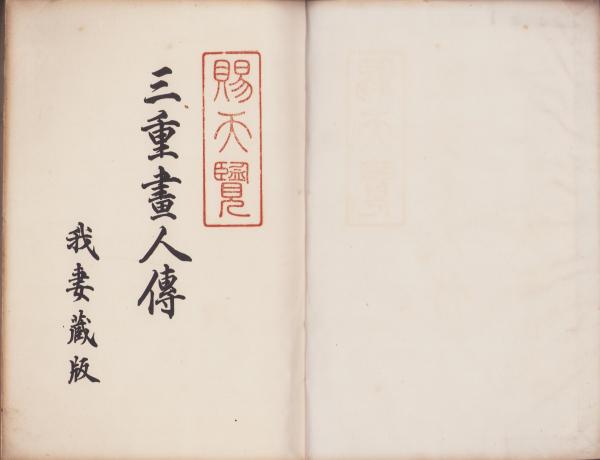 賜天覽
三重畫人傳
我妻藏版